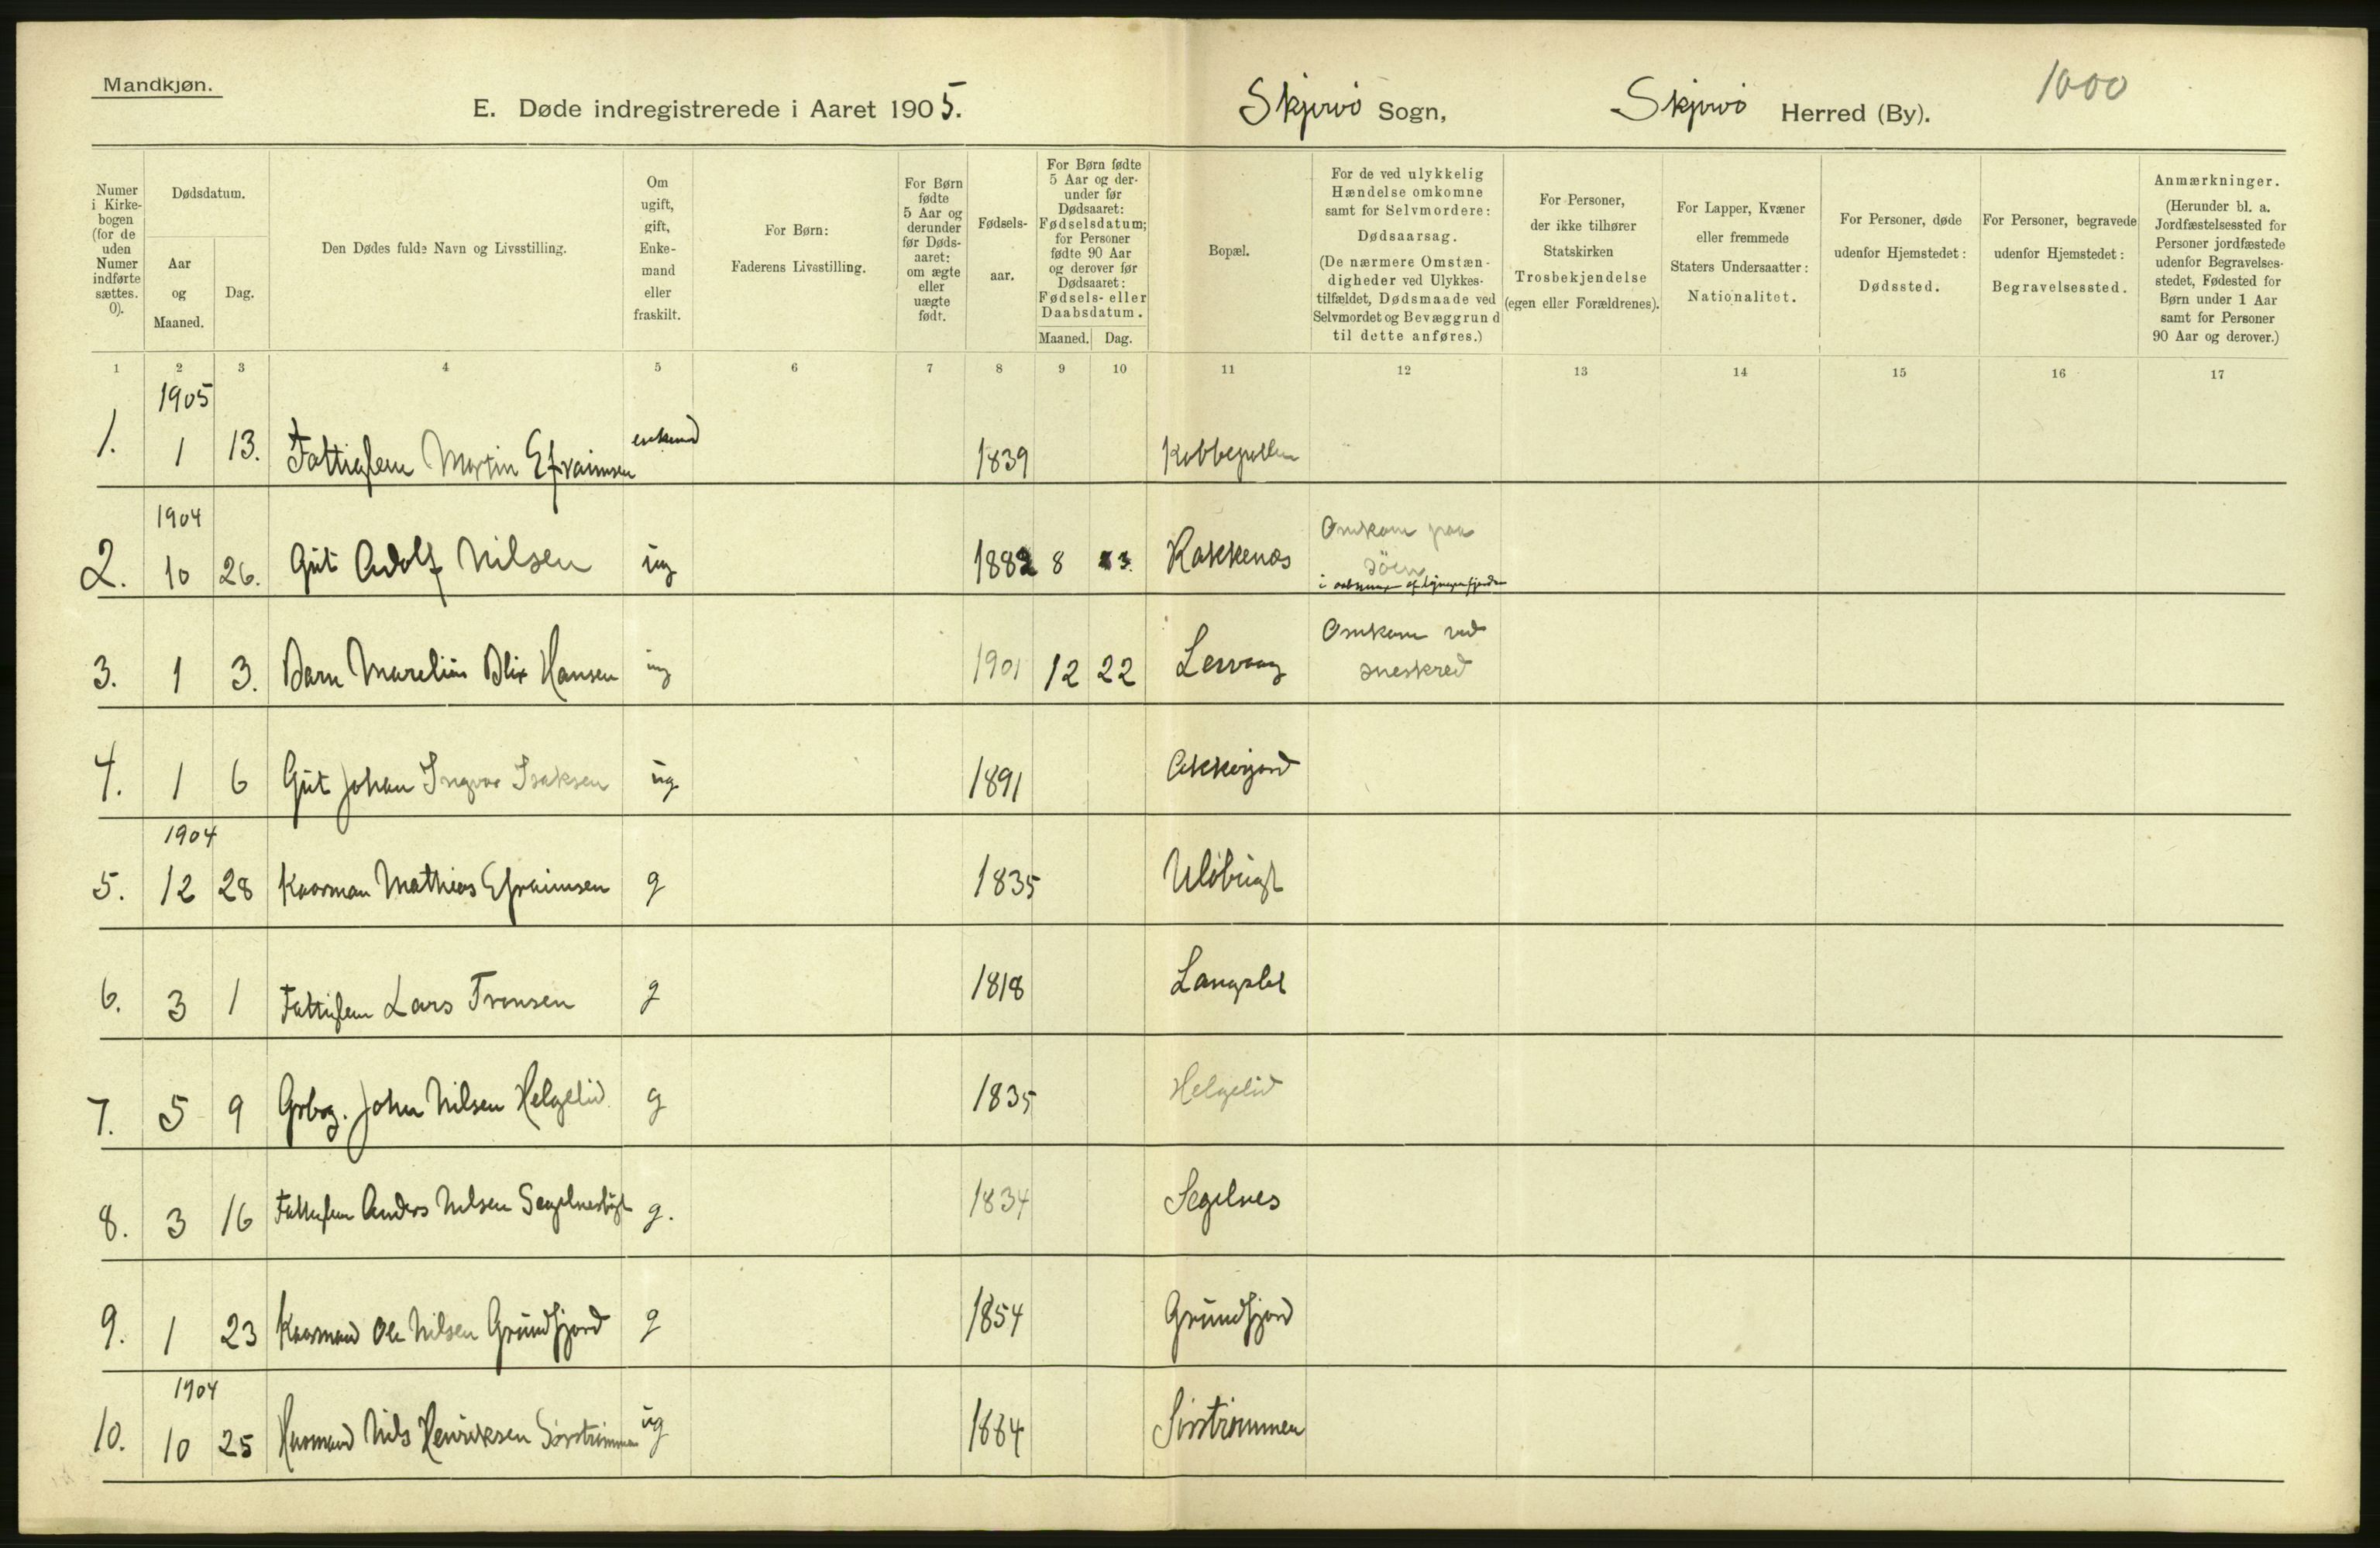 Mandkjøn.
E. Døde indregistrerede i Aaret 1905.
Skjervö Sogn,
Skjervö Herred (By).
1000
Numer i Kirkebogen (for de uden Numer indførte sættes. 0).
Dødsdatum.
Aar og Maaned.
Dag.
Den Dødes fulde Navn og Livsstilling.
Om ugift, gift, Enkemand eller fraskilt.
For Børn: Faderens Livsstilling.
For Børn fødte 5 Aar og derunder før Dødsaaret: om ægte eller uægte født.
Fødselsaar.
For Børn fødte 5 Aar og derunder før Dødsaaret: Fødselsdatum; for Personer fødte 90 Aar og derover før Dødsaaret: Fødsels- eller Daabsdatum.
Maaned. Dag.
Bopæl.
For de ved ulykkelig Hændelse omkomne samt for Selvmordere: Dødsaarsag. (De nærmere Omstændigheder ved Ulykkestilfældet, Dødsmaade ved Selvmordet og Bevæggrund til dette anføres.)
For Personer, der ikke tilhører Statskirken Trosbekjendelse (egen eller Forældrenes).
For Lapper, Kvæner eller fremmede Staters Undersaatter: Nationalitet.
For Personer, døde udenfor Hjemstedet: Dødssted.
For Personer, begravede udenfor Hjemstedet: Begravelsessted.
Anmærkninger. (Herunder bl. a. Jordfæstelsessted for Personer jordfæstede udenfor Begravelsesstedet, Fødested for Børn under 1 Aar samt for Personer 90 Aar og derover.)
1 2 3 4 5 6 7 8 9 10 11 12 13 14 15 16 17
1905
1. 1 13. Fattiglem Martin Efraimsen enkemd 1839 Kobbepollen
1904
2. 10 26. Gut Adolf Nilsen ug 1882 8 3. Rakkenæs Omkom paa söen
3. 1 3. Barn Marelius Blix Hansen ug 1901 12 22 Lervaag Omkom ved sneskred
4. 1 6 Gut Johan Ingvar Isaksen ug 1891 Akkarjord
1904
5. 12 28 Kaarman Mathias Efraimsen g 1835 Ulöbugt
6. 3 1 Fattiglem Lars Fransen g 1818 Langslet
7. 5 9 Grbrg. John Nilsen Helgelid g 1835 Helgelid
8. 3 16 Fattiglem Anders Nilsen Segelnesbugt g. 1834 Segelnes
9. 1 23 Kaarmand Ole Nilsen Grundfjord g 1854 Grundfjord
1904
10. 10 25 Husmand Nils Henriksen Sörströmmen ug 1884 Sörströmmen